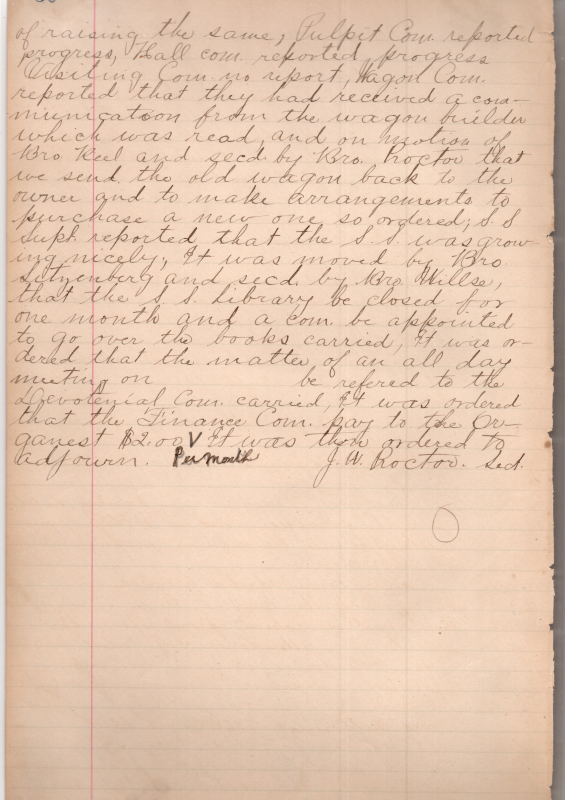 of raising the same, Pulpit Com. reported
progress, Hall com. reported progress
Visiting Com. no report, Wagon Com.
reported that they had received a com-
munication from the wagon builder
which was read, and on motion of
Bro Keel and secd. by Bro. Proctor that
we send the old wagon back to the
owner and to make arrangements to
purchase a new one so ordered, S. S
Supt. reported that the S. S. was grow-
ing nicely, It was moved by Bro.
and secd. by Bro. Willse,
that the S. S. Library be closed for
one month and a com. be appointed
to go over the books carried, It was or-
dered that the matter of an all day
meeting on be refered to the
Devotenial Com. carried, It was ordered
that the Finance Com. pay to the Or-
ganest $2.00 V It was then ordered to
adjourn. Per month J. W. Proctor. Sed.